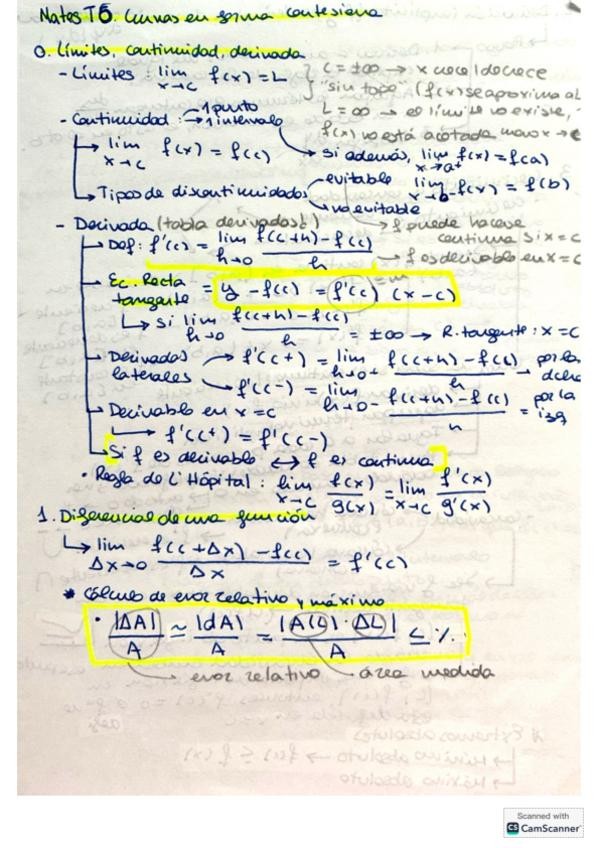 Notes T5. Curvas en forma cartesiana
0. Límites, continuidad, derivada
- Límites : lim x→c f(x) = L { c = ±∞ → x crece/decrece
"sin tope" (f(x) se aproxima a L
L = ∞ → el límite no existe,
f(x) no está acotada x→c
- Continuidad : → 1 punto → 1 intervalo
→ lim x→c f(x) = f(c)
si además, lim x→a+ f(x) = f(a)
lim x→b- f(x) = f(b)
→ Tipos de discontinuidades evitable no evitable
→ f puede hacerse continua si x = c
- Derivada (tabla derivadas!)
→ Def: f'(c) = lim h→0 f(c+h) - f(c) / h → f es derivable en x = c
→ Ec. Recta tangente = y - f(c) = f'(c) (x - c)
= m
→ Si lim h→0 f(c+h) - f(c) / h = ±∞ → R. tangente : x = c
→ Derivadas laterales → f'(c+) = lim h→0+ f(c+h) - f(c) / h → por la dcha
→ f'(c-) = lim h→0- f(c+h) - f(c) / h = por la izq
→ Derivable en x = c
→ f'(c+) = f'(c-)
→ Si f es derivable ↔ f es continua
• Regla de L'Hôpital : lim x→c f(x) / g(x) = lim x→c f'(x) / g'(x)
1. Diferencial de una función
→ lim Δx→0 f(c + Δx) - f(c) / Δx = f'(c)
* Cálculo de error relativo y máximo
• |ΔA| / A ≃ |dA| / A = |A(L) · ΔL| / A ≤ %.
→ error relativo → área medida
Scanned with
CS CamScanner